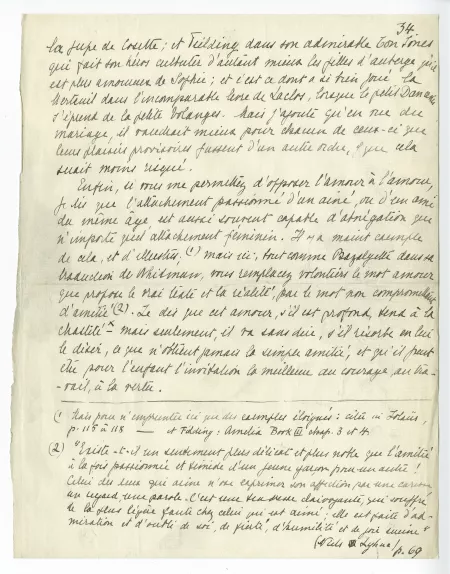 34.
la jupe de Cosette; et Fielding dans son admirable Tom Jones
qui fait son héros culbuter d'autant mieux les filles d'auberge qu'il
est plus amoureux de Sophie; et c'est ce dont a si bien joué la
Merteuil dans l'incomparable livre de Laclos, lorsque le petit Danceny
s'éprend de la petite Volanges. Mais j'ajoute qu'en vue du
mariage, il vaudrait mieux pour chacun de ceux-ci que
leurs plaisirs provisoires fussent d'un autre ordre, que cela
serait moins risqué.
Enfin, si vous me permettez d'opposer l'amour à l'amour,
je dis que l'attachement passionné d'un aîné, ou d'un ami
du même âge est aussi souvent capable d'abnégation que
n'importe quel attachement féminin. Il y a maint exemple
de cela, et d'illustres. (1) mais ici, tout comme Bazalgette dans sa
traduction de Whitman, vous remplacez volontiers le mot amour
que propose le vrai texte et la réalité, par le mot non compromettant
d'amitié (2). Je dis que cet amour, s'il est profond, tend à la
chasteté x mais seulement, il va sans dire, s'il résorbe en lui
le désir, ce que n'obtient jamais la simple amitié, et qu'il peut
être pour l'enfant l'invitation la meilleure au courage, au tra-
vail, à la vertu.
(1) Mais pour n'emprunter ici que des exemples éloignés: cités in Ioläus,
p. 115 à 118 — et Fielding: Amelia Book III chap. 3 et 4
(2) "Existe-t-il un sentiment plus délicat et plus noble que l'amitié
à la fois passionnée et timide d'un jeune garçon pour un autre!
Celui des deux qui aime n'ose exprimer son affection par une caresse
un regard, une parole. C'est une tendresse clairvoyante, qui souffre
de la plus légère faute chez celui qui est aimé; elle est faite d'ad-
miration et d'oubli de soi, de fierté, d'humilité et de joie sereine"
(Niels Lyhne) p. 69